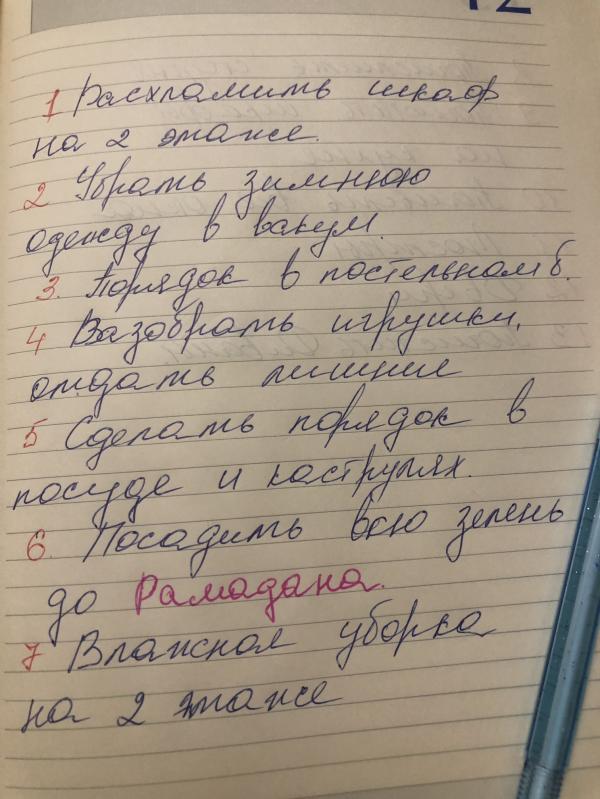 12
1 Расхламить шкаф
на 2 этаже.
2 Убрать зимнюю
одежду в вакум.
3. Порядок в постельном б.
4 Разобрать игрушки,
отдать лишние
5 Сделать порядок в
посуде и каструлях.
6. Посадить всю зелень
до Рамадана.
7 Влажная уборка
на 2 этаже